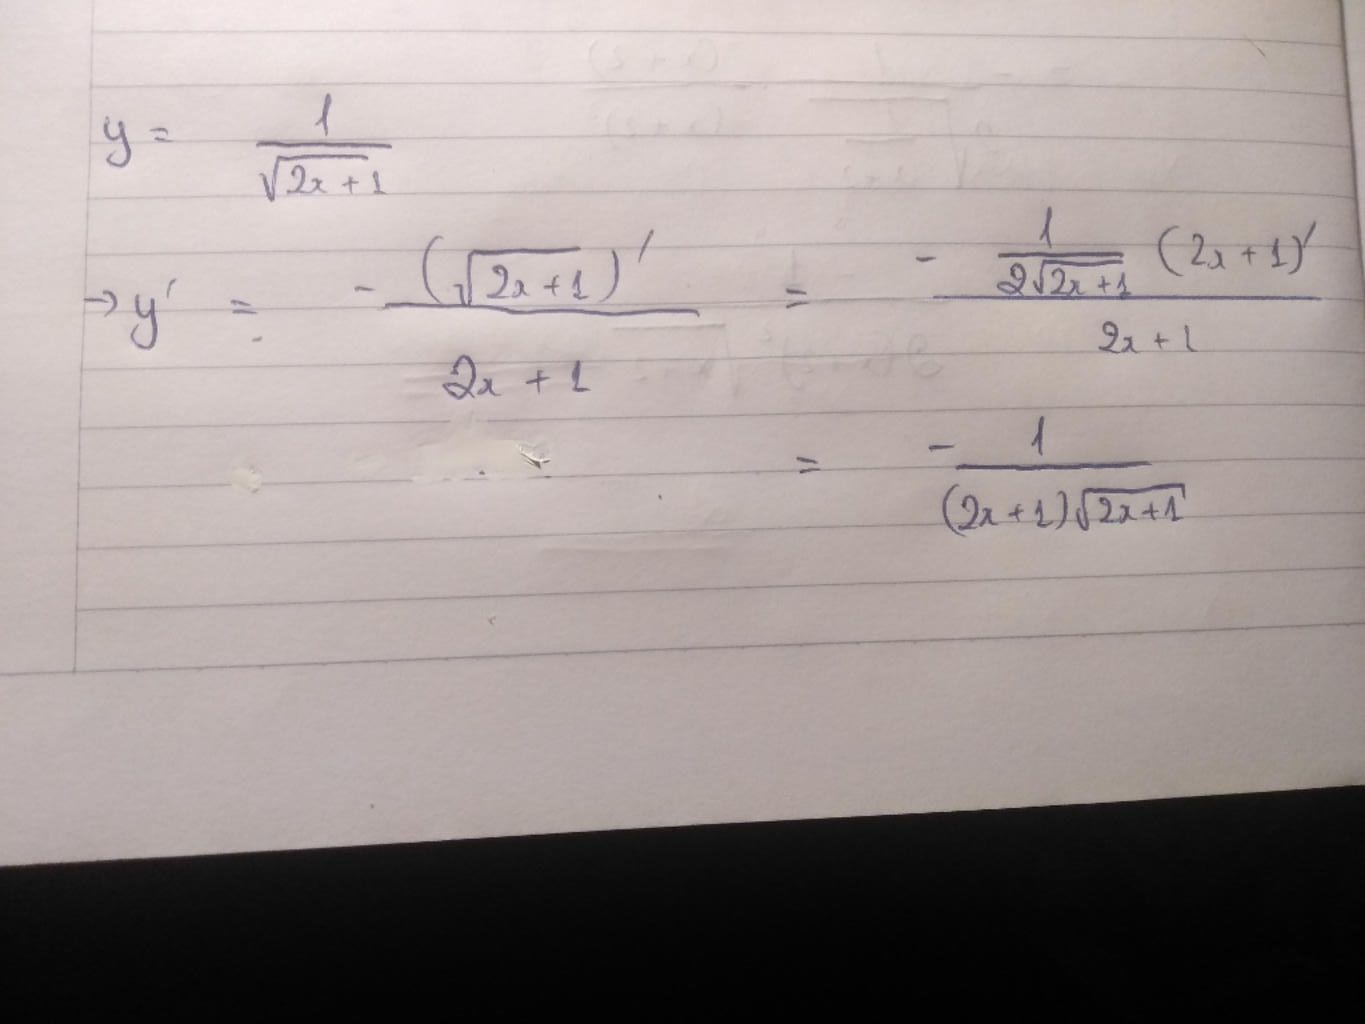 y = 1/√(2x+1)
→ y' = - (√(2x+1))' / (2x+1) = - (1/(2√(2x+1))) (2x+1)' / (2x+1)
= - 1/((2x+1)√(2x+1))